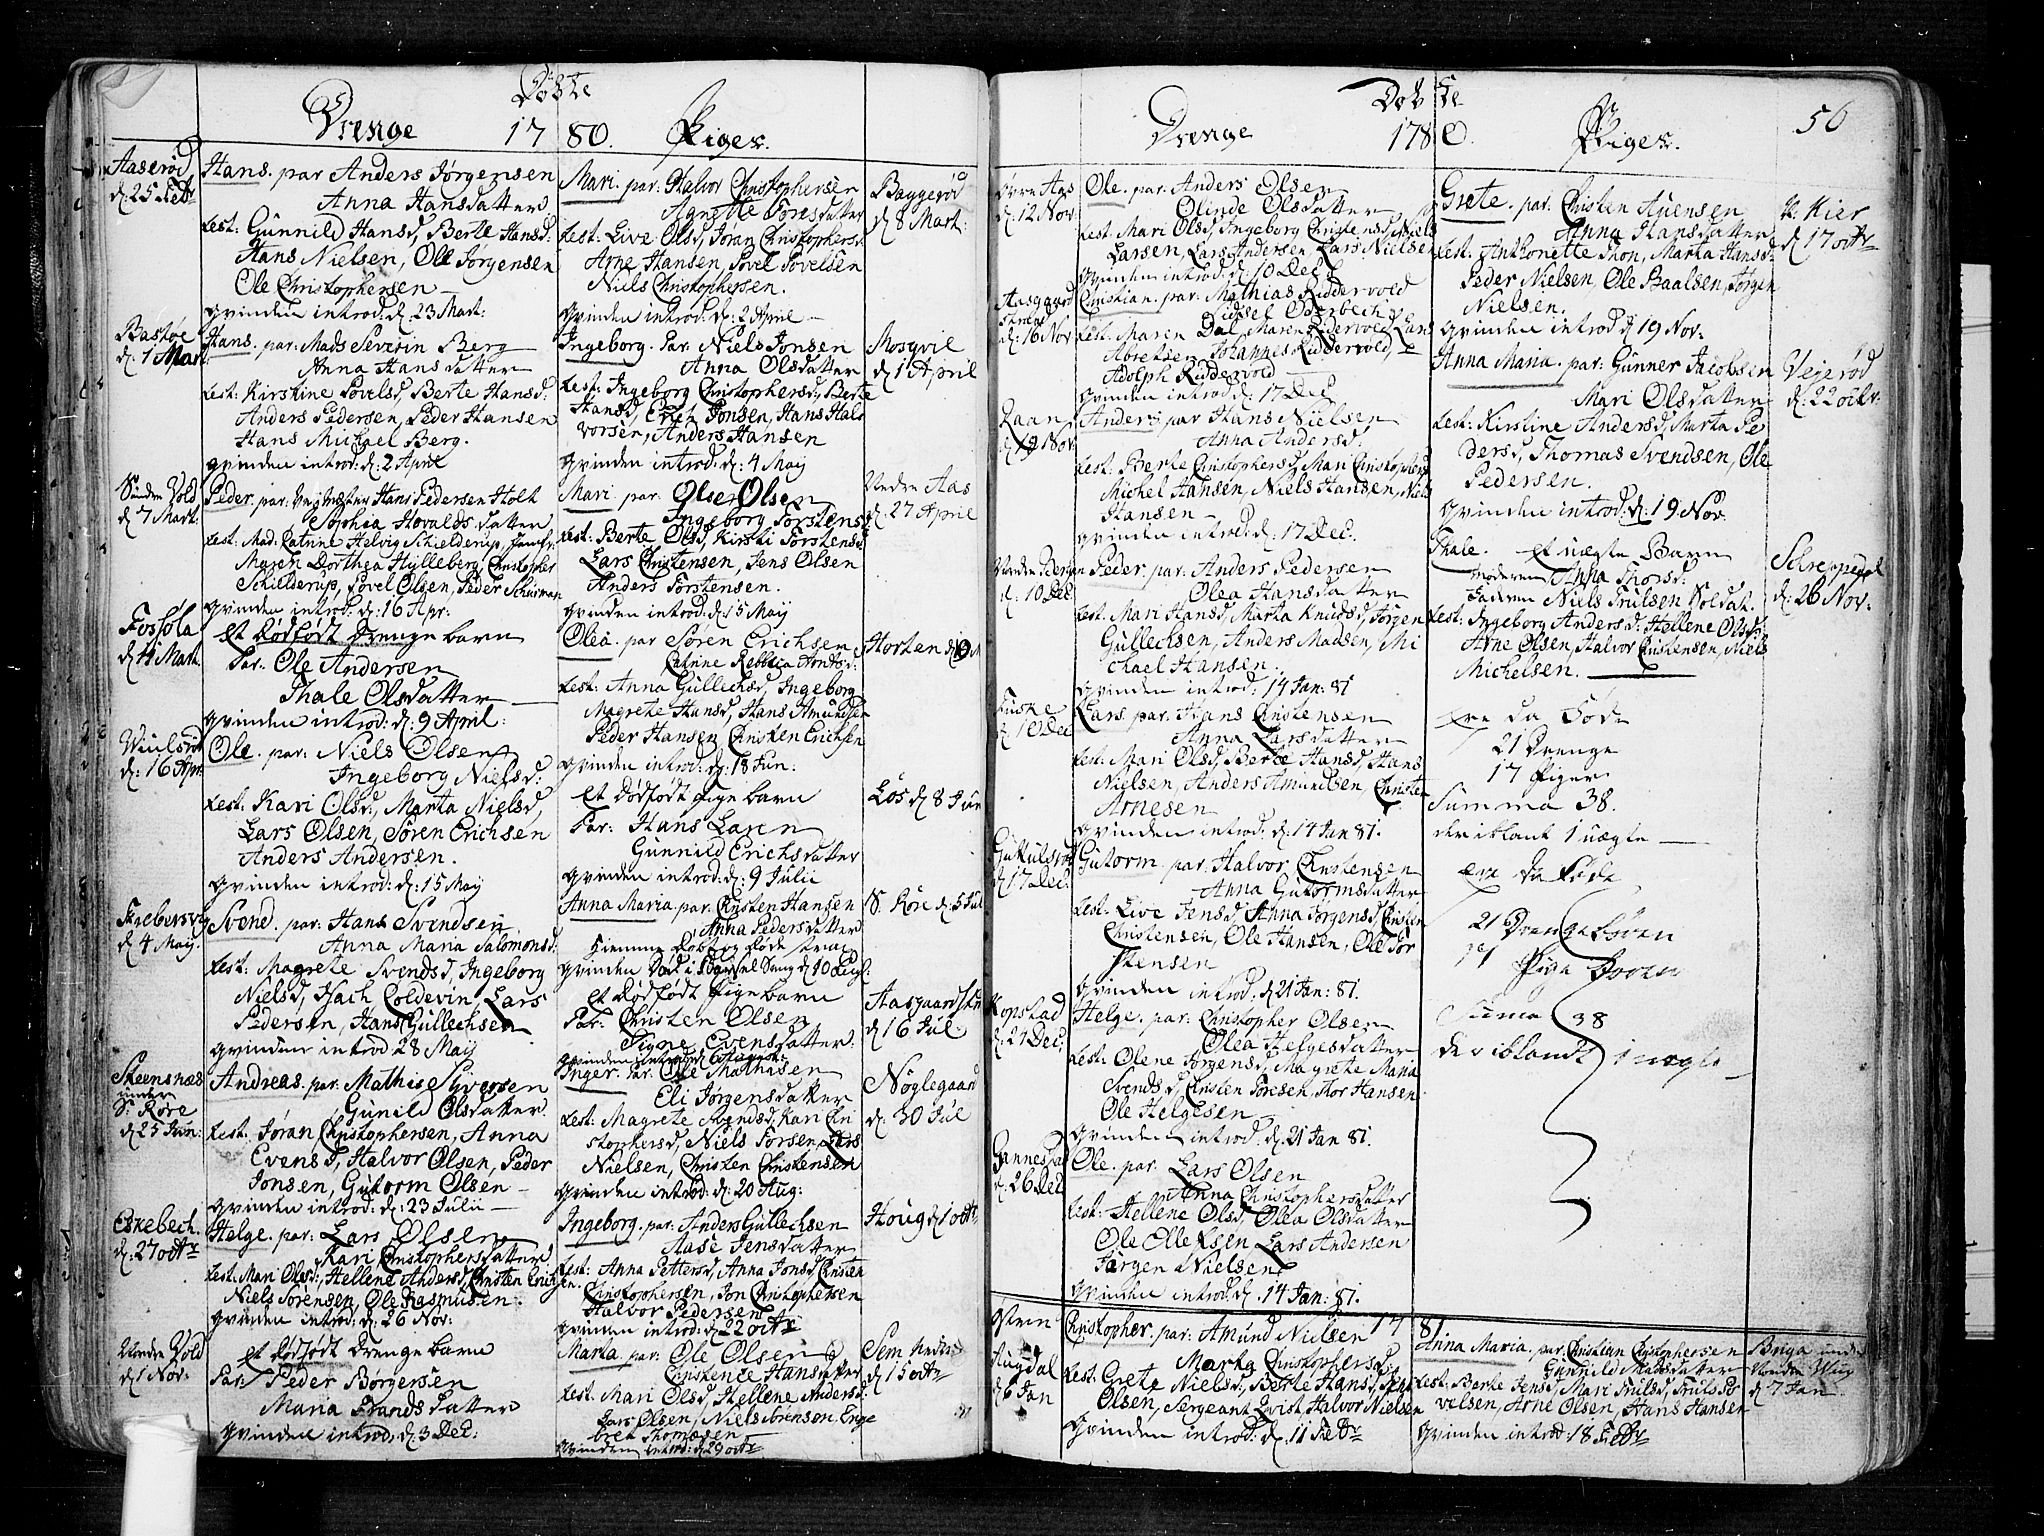 Döbte
Drenge 1780. Piger.
Aaserød
d: 25 Febr
Hans. par Anders Jørgensen
Anna Hansdatter
Test: Gunnild Hansd, Berte Hansd:
Hans Nielsen, Ole Jørgensen
Ole Christophersen
qvinden introd: d: 23 Mart:
Bastøe
d: 1 Mart:
Hans. par: Mads Severin Berg
Anna Hansdatter
Test: Kirstine Povelsd, Berte Hansd:
Anders Pedersen, Peder Hansen
Hans Michael Berg.
qvinden introd: d: 2 April
Søndre Vold
d 7 Mart:
Peder. par: Hans Pedersen Holt
Sophia Hovaldsdatter
Test: Mad: Catrine Helvig Schielderup, Jomfr:
Maren Dorthea Hylleberg, Christopher
Schielderup, Povel Olsen, Peder
qvinden introd: d: 16 Apr:
Fossøla
d 11 Mart.
et dødfødt Drenge barn
Par. Ole Andersen
Thale Olsdatter
qvinden introd: d: 9 April:
d: 16 Apr:
Ole. par: Niels Olsen
Ingeborg Nielsd:
Test: Kari Olsd:, Marta Nielsd,
Lars Olsen, Sören Erichsen
Anders Andersen.
qvinden introd: d: 15 Maij
d 4 Maij.
Svend. par: Hans Svendsen
Anna Maria Salomonsd:
Test: Magrete Svendsd, Ingeborg
Nielsd, Isach Coldevin, Lars
Pedersen, Hans Gullechsen
qvinden introd 28 Maij
Steensnæs
under
S. Røre
d 25 Jun:
Andreas. par: Mathis Syversen
Gunild Olsdatter
Test: Jøran Christophersen, Anna
Evensd, Halvor Olsen, Peder
Jonsen, Gutorm Olsen
qvinden introd: d: 23 Julii
Eskebech.
d: 27 octr
Helge. par: Lars Olsen
Kari Christophersdatter
Test: Mari Olsd:, Hellene Andersd, Christen Erichsen
Niels Sørensen, Ole Rasmusen.
qvinden introd: d: 26 Nov:
Nedre Vold
d 1 Nov:
et dødfødt Drenge barn
Par: Peder Børgersen
Maria Frandsdatter
qvinden introd, d: 3 Dec:
Mari. par: Halvor Christophersen
Agnette Toresdatter
Test: Live Olsd, Jøran Christophersd:
Arne Hansen, Povel Povelsen
Niels Christophersen.
qvinden introd: d: 2 April
Baggerød
d 8 Mart:
Ingeborg. Par. Niels Jonsen
Anna Olsdatter
Test: Ingeborg Christophersd, Berte
Hansd, Erch Jonsen, Hans Hal
vorsen, Anders Hansen
qvinden introd: d: 4 Maij
Mosqvil
d 1 April
Mari par: Olser Olsen
Ingeborg Torstensd
Test: Berte Olsd, Kirsti Torstensd
Lars Christensen, Jens Olsen
Anders Torstensen.
qvinden introd: d: 15 Maij
Nedre Aas
d: 27 April
Olea. par Sören Erichsen
Catrine Rebbeca
Test: Anna Gullechsd, Ingeborg
Magrete Hansd, Hans Amundsen
Peder Hansen Christen Erichsen
qvinden introd: d: 18 Jun:
Horten
et dødfødt Pige barn
Par: Hans Laren
Gunnild Erichsdatter
qvinden introd: d: 9 Julii
Løs d 8 Jun
Anna Maria. par: Christen Hansen
Anna Pedersdatter
Hiemme døbt og døde strax
S. Røre d: 5 Jul
et dødfødt Pige barn
Par: Christen Olsen
Signe Evensdatter.
Aasgaard
d 16 Jul:
Inger. Par: Ole Mathisen
Eli Jørgensdatter
Test: Magrete Svendsd, Kari Chri
stophersd, Niels Torsen, Lars
Nielsen, Christen Christensen
qvinden introd: d: 20 Aug:
Nøglegaard
d: 30 Jul
Ingeborg. par: Anders Gullechsen
Aase Jensdatter
Test: Anna Pettersd, Anna Jonsd, Christen
Christophersen, Jon Christophersen
Halvor Pedersen
qvinden introd: d 22 octr
Houg d 1 octr
Marta par: Ole Olsen
Christence Hansdatter
Test. Mari Olsd, Hellene Andersd.
Lars Olsen, Niels Sörensen Enge
bret Thomæsen
qvinden introd: d 29 octr
Sem
d 15 octr
Døbte
Drenge 1780. Piger. 56
Øvre Aas
d: 12 Nov.
Ole. par: Anders Olsen
Olinde Olsdatter
Test: Mari Olsd, Ingeborg Christensd, Niels
Larsen, Lars Andersen Lars Nielsen
qvinden introd: d: 10 Dec
Aasgaard
d: 16 Nov
Christian. par: Mathias Riddervold
Sidsel Oderbech
Test: Maren Dal, Maren Riddervold, Lars
Abretsen, Johannes Riddervold,
Adolph Riddervold
qvinden introd: d: 17 Dec
Raan
d: 19 Nov
Anders. par Hans Nielsen
Anna Andersd.
Test: Berte Christophersd, Mari Christophersd
Michel Hansen, Niels Hansen, Niels
Hansen
qvinden introd: d: 17 Dec.
d: 10 Dec
Peder. par: Anders Pedersen
Olea Hansdatter
Test: Mari Hansd, Marta Knudsd, Jørgen
Gullechsen, Anders Madsen, Mi
chael Hansen.
qvinden introd: 14 Jan: 81
d: 10 Dec
Lars. par: Hans Christensen
Anna Larsdatter
Test: Mari Olsd, Berte Hansd, Hans
Nielsen, Anders Amundsen, Christen
Arnesen
qvinden introd: d: 14 Jan 81.
d 17 Dec:
Gutorm. par: Halvor Christensen
Anna Gutormsdatter
Test: Live Jensd, Anna Jørgensd, Christen
Christensen, Ole Hansen, Ole Tor
stensen
qvinden introd: d 21 Jan: 81.
Kopstad
d: 21 Dec:
Helge. par: Christopher Olsen
Olea Helgesdatter
Test: Olene Jørgensd, Magrete Maria
Svendsd, Christen Toresen, Thor Hansen
Ole Helgesen
qvinden introd: d: 21 Jan 81.
Gannestad
d: 26 Dec
Ole. par. Lars Olsen
Anna Christophersdatter
Test: Hellene Olsd, Olea Olsdatter
Ole Ollefsen Lars Andersen
Jørgen Nielsen
qvinden introd: d. 14 Jan: 81.
Grete. par: Christen Auensen
Anna Hansdatter
Test: Anthonette Thon, Marta Hansd:
Peder Nielsen, Ole Paalsen, Jørgen
Nielsen.
qvinden introd d 19 Nov:
N: Kier
d 17 octr
Anna Maria. par: Gunner Jacobsen
Mari Olsdatter
Test: Kirstine Andersd, Marta Pe
dersd, Thomas Svendsen, Ole
Pedersen.
qvinden introd: d: 19 Nov.
Vejerød
d: 22 octr.
Thale. et uægte Barn
moderen Anna Thorsd:
faderen Niels Trulsen Soldat.
Test: Ingeborg Andersd: Hellene Olsd:
Arne Olsen, Halvor Christensen, Niels
Michelsen.
d: 26 Nov.
ere da Føde
21 Drenge
17 Piger
Summa 38.
der iblant 1 uægte
ere da føde
21 Drenge børen
17 Pige børen
Suma 38
der iblandt 1 uegte
1781
d 6 Jan
Christopher. par: Amund Nielsen
Marta Christophersd:
Test. Grete Nielsd, Berte Hansd,
Olsen, Sergeant Qvist, Halvor Nielsen
qvinden introd: d: 11 Febr
Anna Maria. par: Christian Christophersen
Gunnild Madsdatter
Test: Berte Jensd, Mari Trulsd, Truls Po
velsen, Arne Olsen, Hans Hansen
qvinden introd: 18 Febr
d 7 Jan